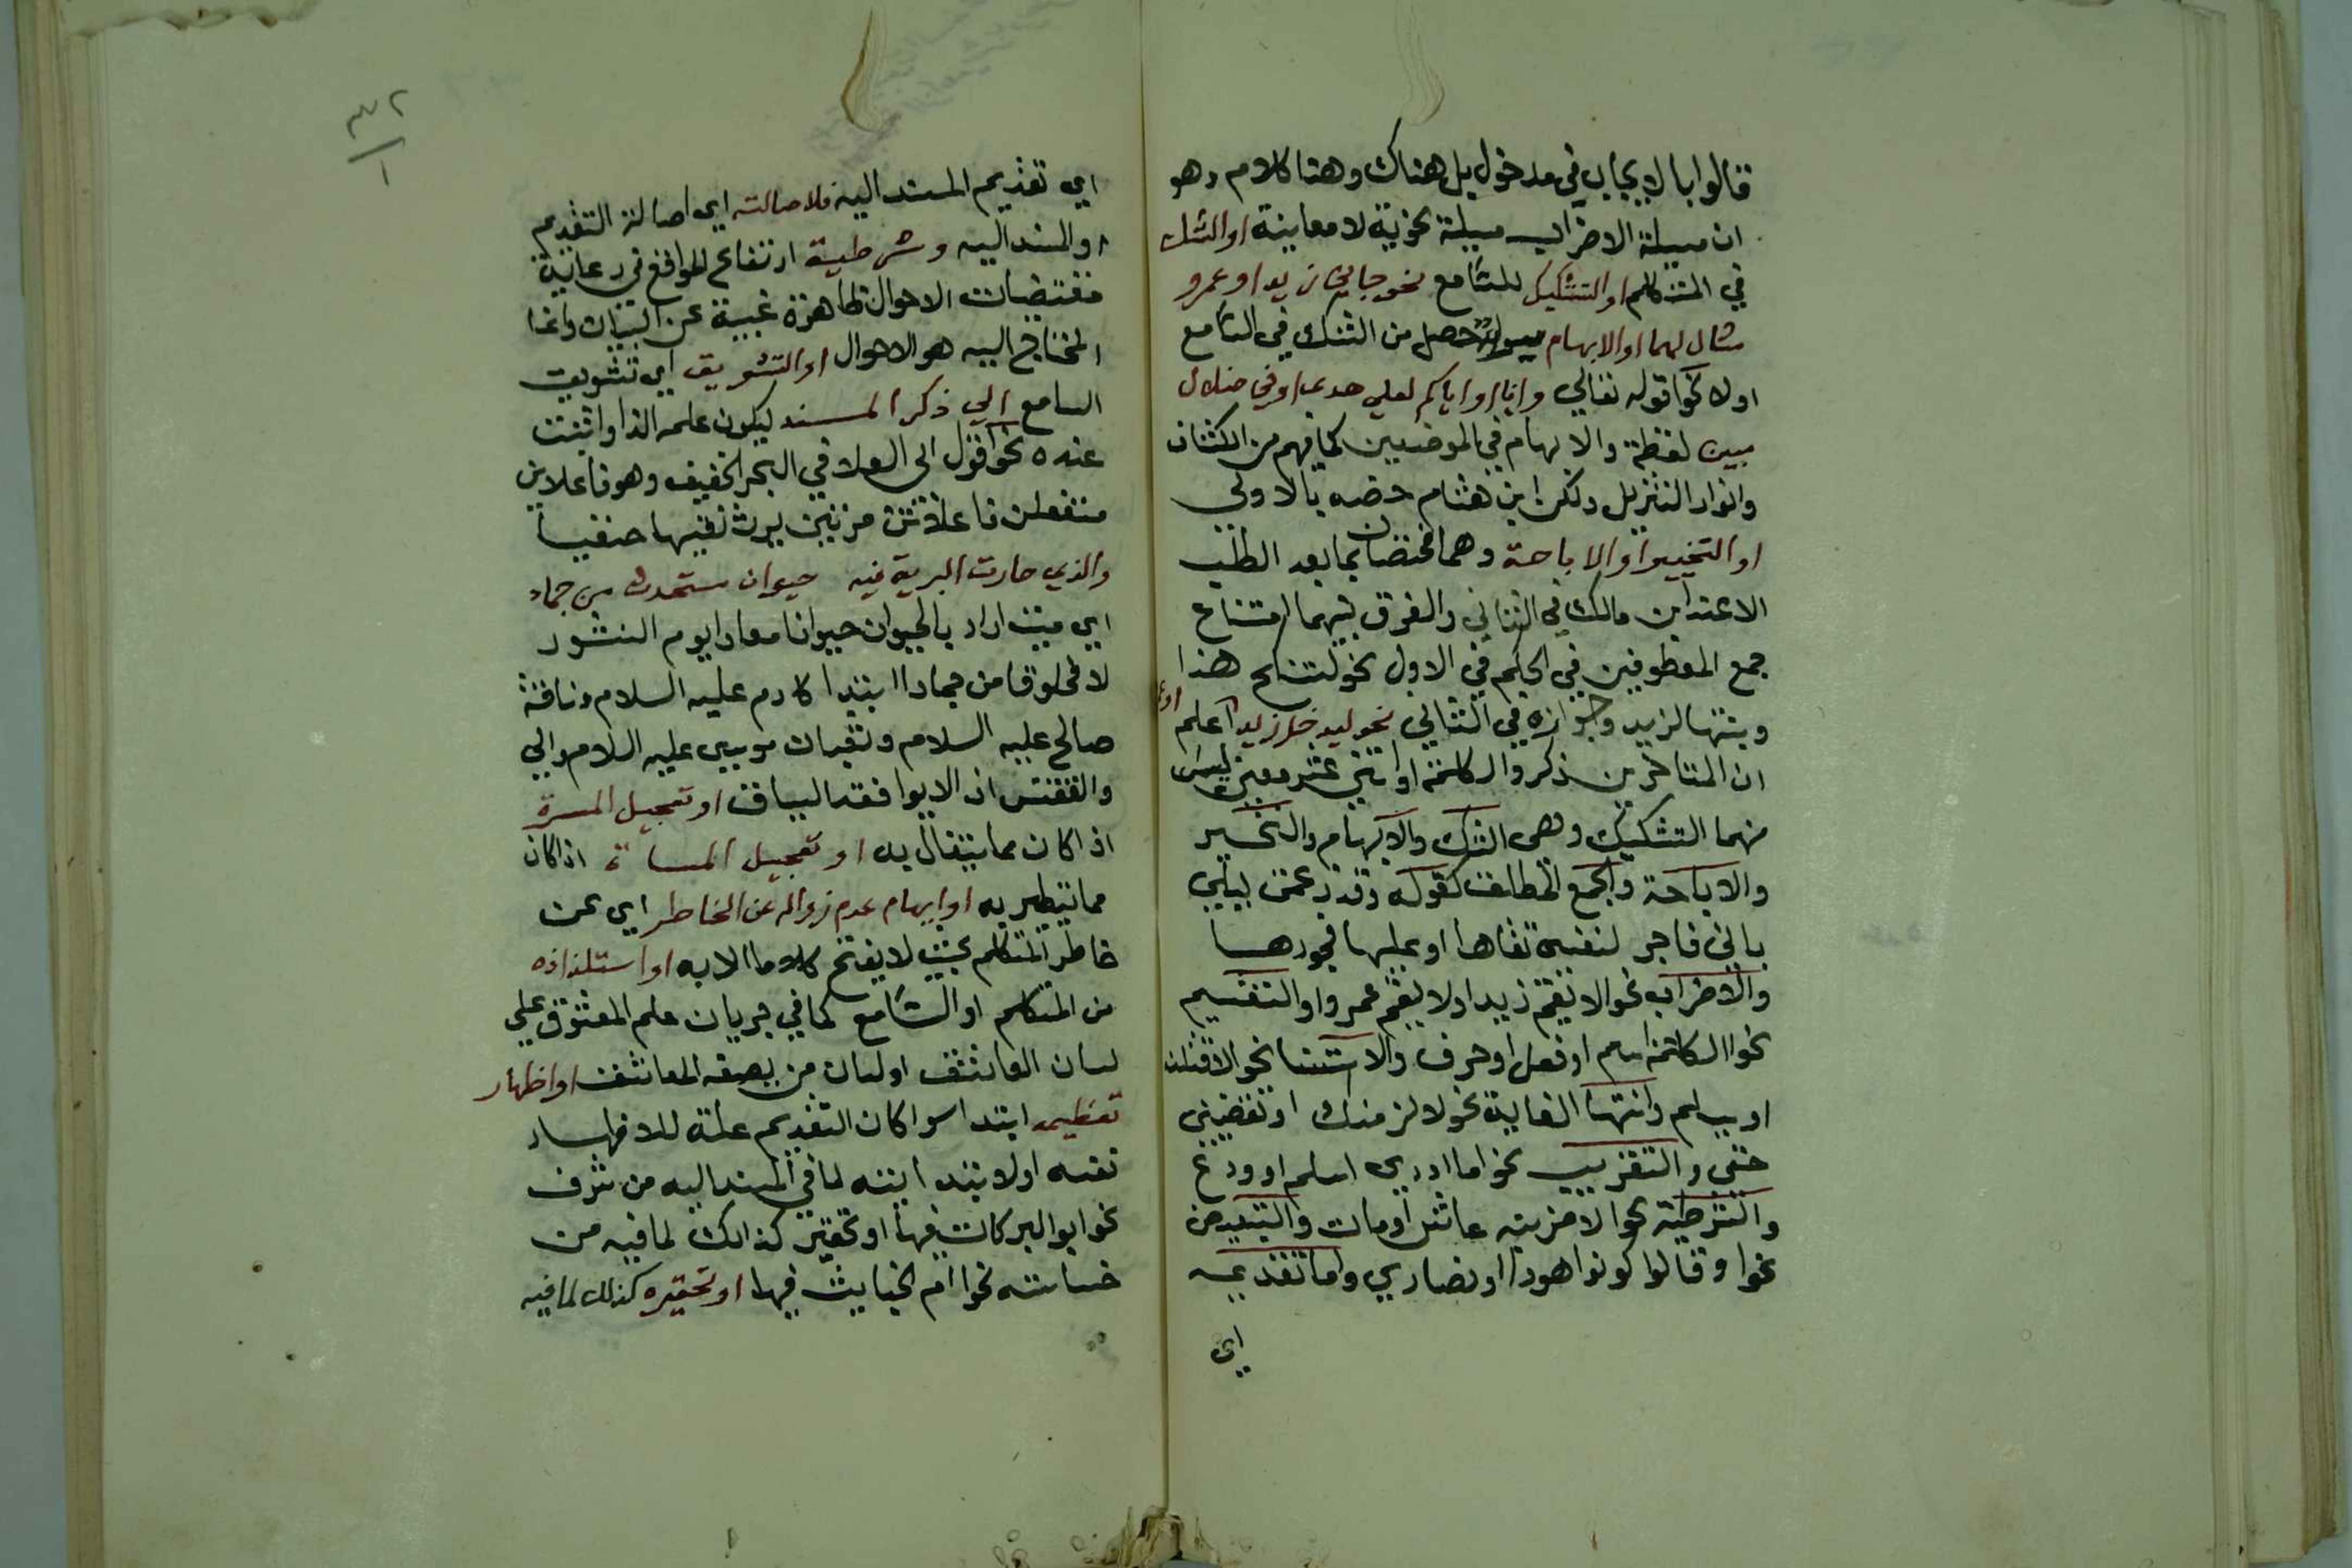 قالوا بالايجاب في مدخول بل هناك وهنا كلام وهو
ان مسيلة الاضراب مسيلة نحوية لا معاينة او الشك
في المتكلم او التشكيك للسامع نحو جاني زيد او عمرو
مثال لهما او الابهام حصل من الشك في السامع
اولا نحو قوله تعالي وانا او اياكم لعلي هدي او في ضلال
مبين لفظة والابهام في الموضعين كما فهم من الكشاف
وانوار التنزيل ولكن ابن هشام خصه بالاولي
او التخيير او الاباحة وهما مختصان بما بعد الطلب
الا عند ابن مالك في الثاني والفرق بينهما امتناع
جمع المعطوفين في الحكم في الاول نحو لتنكح هذا
وبنتها لزيد وجوازه في الثاني نحو ليدخل زيد اعلم
ان المتاخرين ذكروا لكلمة او اثني عشر معني ليس
منهما التشكيك وهي الشك والابهام والتخيير
والاباحة والجمع المطلق كقوله وقد زعمت ليلي
باني فاجر لنفسي تقاها او عليها فجورها
والاضراب نحو لا يقم زيد او لا يقم عمرو او التقسيم
نحو الكلمة اسم او فعل او حرف والاستثنا نحو لاقتلنه
او يسلم وانتها الغاية نحو لالزمنك او تقضيني
حقي والتقريب نحو ما ادري اسلم او ودع
والشرطية نحو لاضربنه عاش او مات والتبعيض
نحو وقالوا كونوا هودا او نصاري واما تقديمه
اي
٣٢
١
اي تقديم المسند اليه فلاصالته اي اصالة التقديم
او المسند اليه وشرطية ارتفاع الموانع في رعاية
مقتضيات الاحوال ظاهرة غنية عن البيان وانما
المحتاج اليه هو الاحوال او التشويق اي تشويق
السامع الي ذكر المسند ليكون علمه الذ او اثبت
عنده نحو قول ابي العلا في البحر الخفيف وهو فاعلاتن
مستفعلن فاعلاتن مرتين يرث نفيها حنفيا
والذي حارت البرية فيه حيوان مستحدث من جماد
اي ميت اراد بالحيوان حيوانا معادا يوم النشور
لا مخلوقا من جماد ابتدا كادم عليه السلام وناقة
صالح عليه السلام وثعبان موسي عليه السلام والي
والققنس اذ لا يوافقه السياق او تعجيل المسرة
اذا كان مما يتفال به او تعجيل المساة اذا كان
مما يتطير به او ايهام عدم زواله عن الخاطر اي عن
خاطر المتكلم بحيث لا يفتح كلاما الا به او استلذاذه
من المتكلم او السامع كما في جريان علم المعشوق علي
لسان العاشق او لسان من العاشق او اظهار
تعظيمه ابتدا سوا كان التقديم علة للاظهار
نفسه او لابتدايته لما في المسند اليه من شرف
نحو ابو البركات فيها او تحقير كذلك لما فيه من
خساسته نحو ام الخبايث فيها او تحقيره كذلك لما فيه